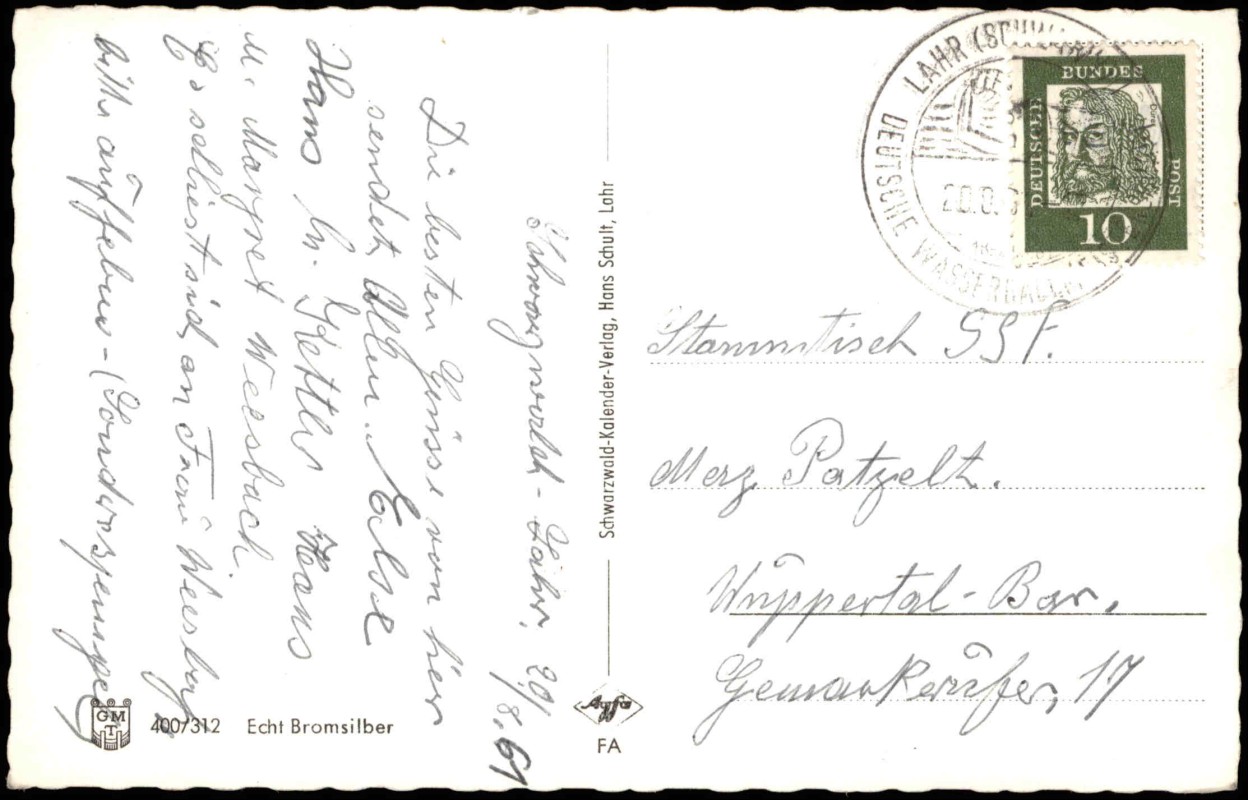 Schwarzwald-Lahr, 20/8.61
Die besten Grüsse von hier
sendet Allen. Else
Hans
u. Margret Weesbach
Es schliest sich an Frau Weesbach
bitte aufheben - (Sonderstempel
Schwarzwald-Kalender-Verlag, Hans Schult, Lahr
GMT
400/312 Echt Bromsilber
Agfa
FA
LAHR (SCHW
DEUTSCHE WASSERBALL
20.8.
DEUTSCHE BUNDES POST
10
Stammtisch SSF.
Merz. Patzelt.
Wuppertal-Bar.
Gemarkerufer, 17